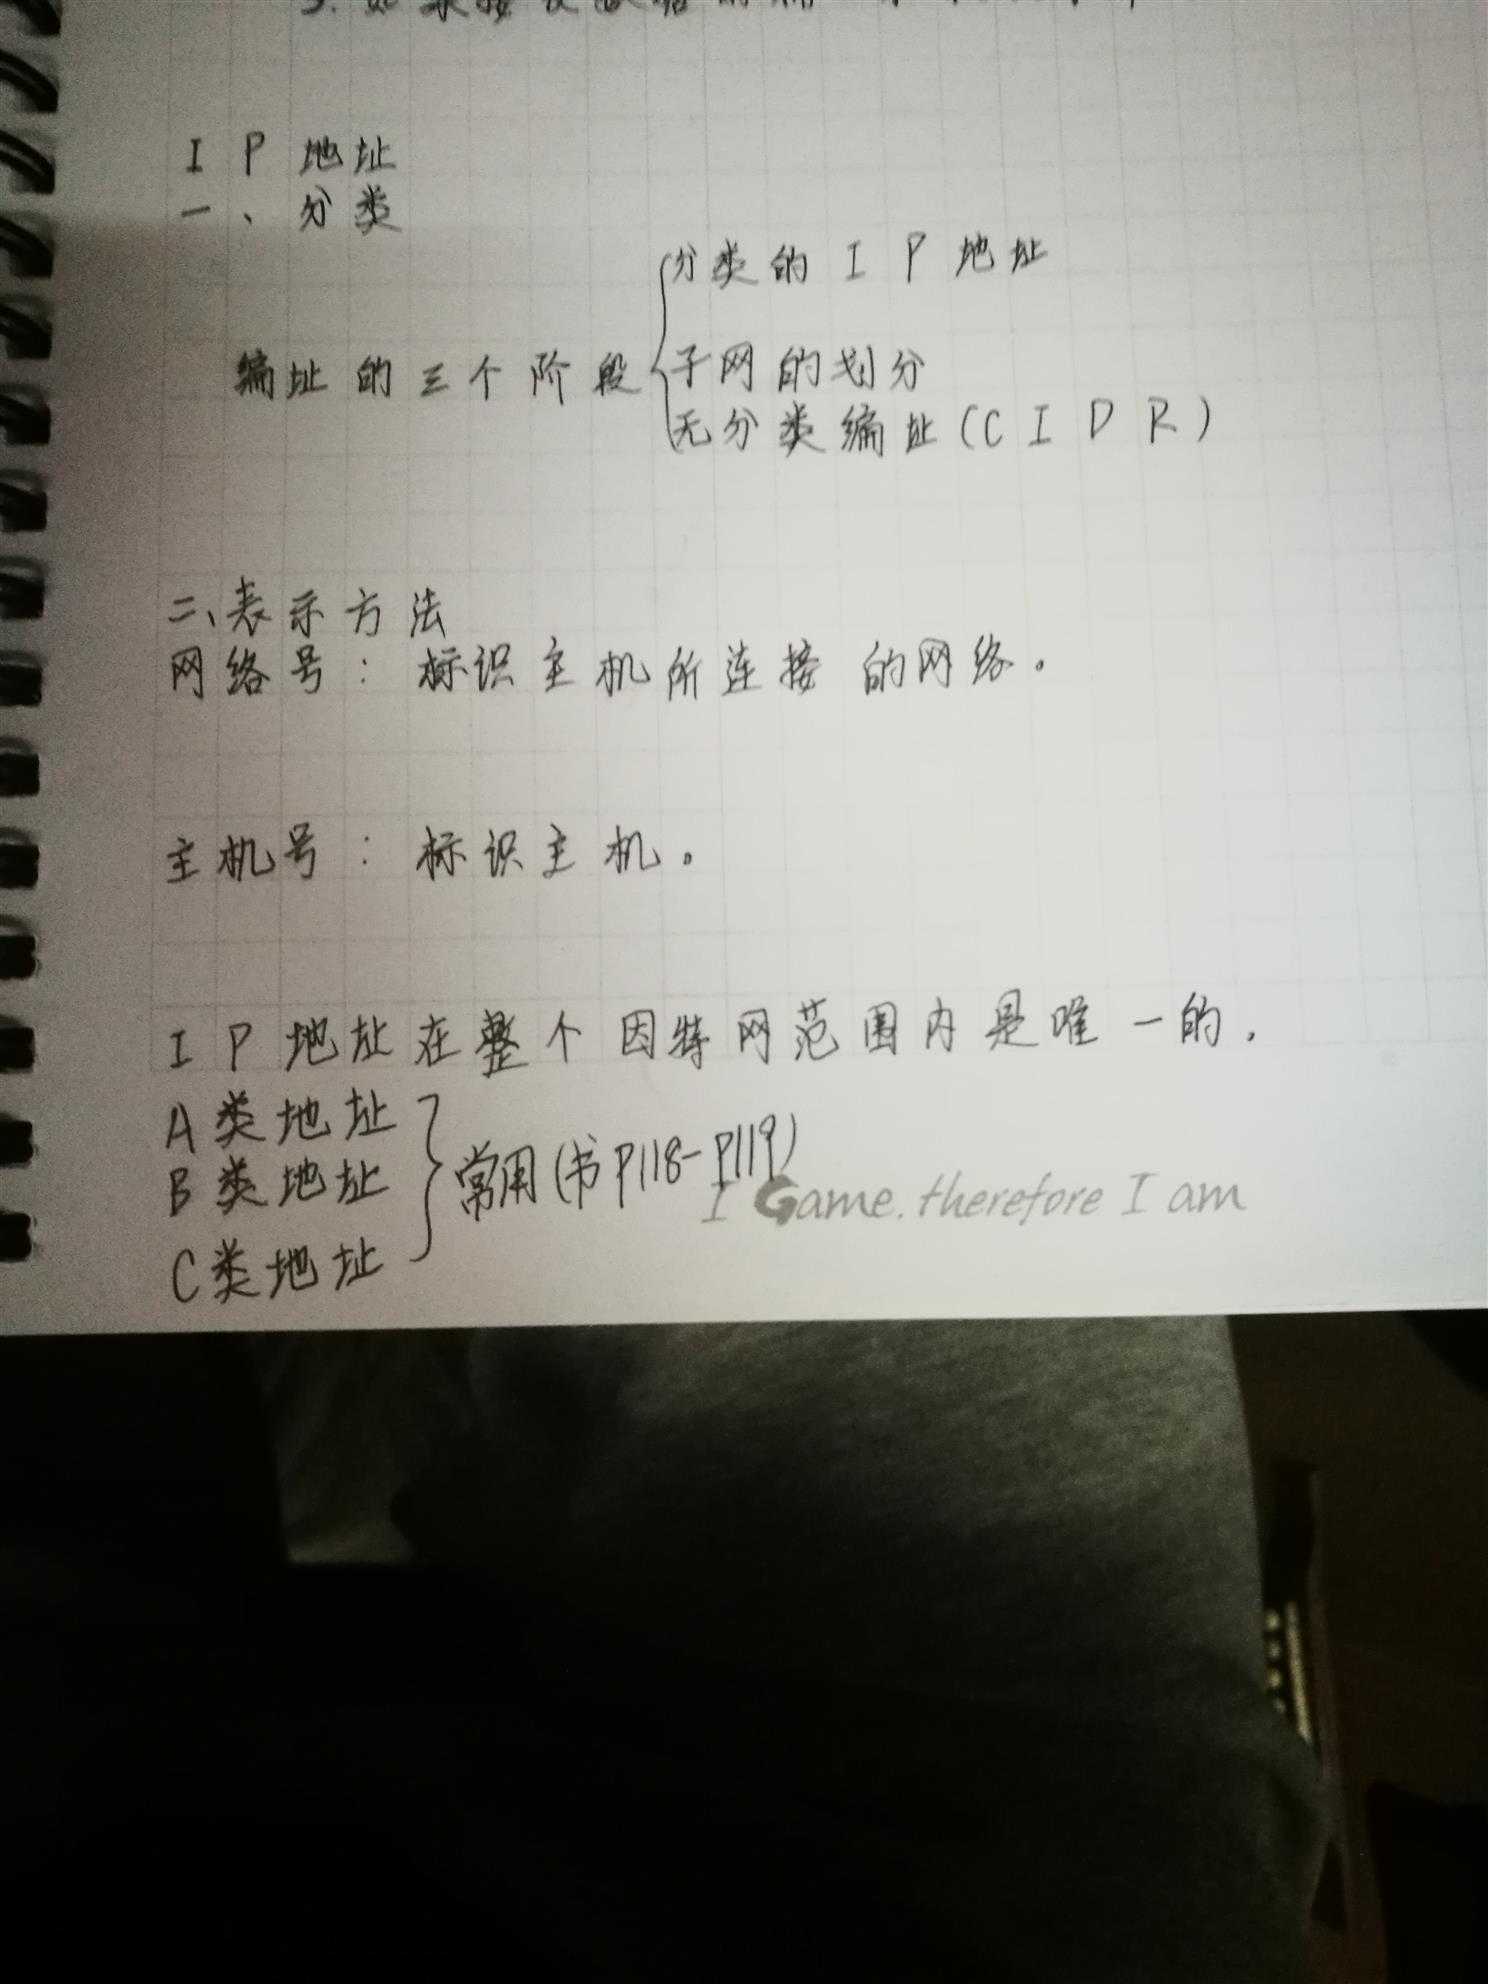 IP地址
一、分类
分类的IP地址
编址的三个阶段
子网的划分
无分类编址(CIDR)
二、表示方法
网络号:标识主机所连接的网络。
主机号:标识主机。
IP地址在整个因特网范围内是唯一的.
A类地址
B类地址
C类地址
常用(书P118-P119)
I Game. therefore I am